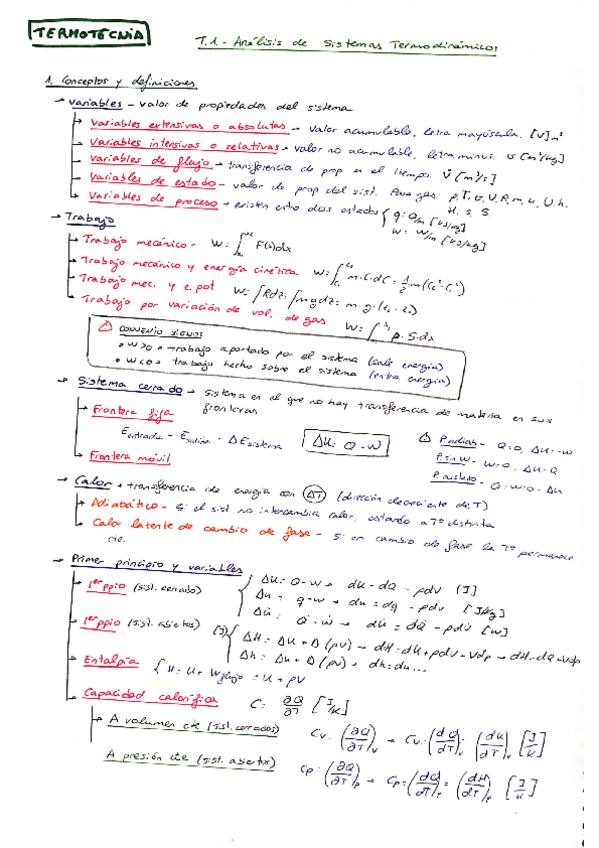 TERMOTECNIA
T.1 - Análisis de Sistemas Termodinámicos
1. Conceptos y definiciones
→ Variables - valor de propiedades del sistema
→ Variables extensivas o absolutas → valor acumulable, letra mayúscula. [V] m³
→ Variables intensivas o relativas → valor no acumulable, letra minus. v [m³/kg]
→ Variables de flujo → transferencia de prop en el tiempo. V̇ [m³/s]
→ Variables de estado - valor de prop del sist. Para gas: p, T, v, U, R, m, u, U, h, H, s, S
→ Variables de proceso → existen entre dos estados { q: Q/m [kJ/kg]
w = W/m [kJ/kg]
→ Trabajo
→ Trabajo mecánico - W = ∫ F(x)dx
→ Trabajo mecánico y energía cinética W = ∫ m·C·dC = 1/2 m(c₂²-c₁²)
→ Trabajo mec. y e. pot W = ∫Rdz = ∫mgdz = m·g·(z₁-z₂)
→ Trabajo por variación de vol. de gas W = ∫ p·S·dx
⚠ CONVENIO SIGNOS
• W>0 → trabajo aportado por el sistema (sale energía)
• W<0 → trabajo hecho sobre el sistema (entra energía)
→ Sistema cerrado → sistema en el que no hay transferencia de materia en sus
fronteras
→ Frontera fija
E entrada - E salida = ΔE sistema ΔU = Q-W
⚠ P. adiab - Q=0, ΔU=-W
P. sin W - W=0, ΔU=Q
P. aislado - Q=W=0=ΔU
→ Frontera móvil
→ Calor → transferencia de energía con ΔT (dirección decreciente de T)
→ Adiabático - si el sist no intercambia calor, estando a Tª distinta
→ Calor latente de cambio de fase - si en cambio de fase la Tª permanece
cte.
→ Primer principio y variables
→ 1er ppio (sist. cerrado) { ΔU = Q-W → dU = dQ - pdV [J]
Δu = q-w → du = dq - pdv [J/kg]
ΔU̇ = Q̇ - Ẇ → dU̇ = dQ̇ - pdV̇ [W]
→ 1er ppio (sist. abiertos) [J] { ΔH = ΔU + Δ(pV) → dH = dU + pdV + Vdp → dH = dQ + Vdp
Δh = Δu + Δ(pv) → dh = du...
→ Entalpía { H = U + W flujo = U + pV
→ Capacidad calorífica C = ∂Q/∂T [J/K]
→ A volumen cte (sist. cerrados) Cv = (∂Q/∂T)v → Cv = (dQ/dT)v = (dU/dT)v [J/K]
A presión cte (sist. abiertos) Cp = (∂Q/∂T)p → Cp = (dQ/dT)p = (dH/dT)p [J/K]